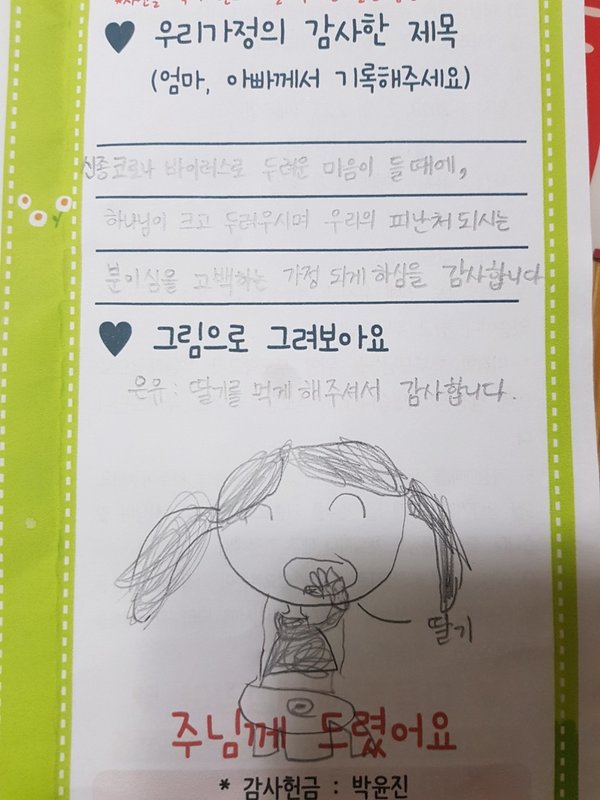 우리가정의 감사한 제목
(엄마, 아빠께서 기록해주세요)
신종코로나 바이러스로 두려운 마음이 들때에,
하나님이 크고 두려우시며 우리의 피난처 되시는
분이심을 고백하는 가정 되게 하심을 감사합니다
그림으로 그려보아요
은유 : 딸기를 먹게 해주셔서 감사합니다.
딸기
주님께 드렸어요
* 감사헌금 : 박윤진